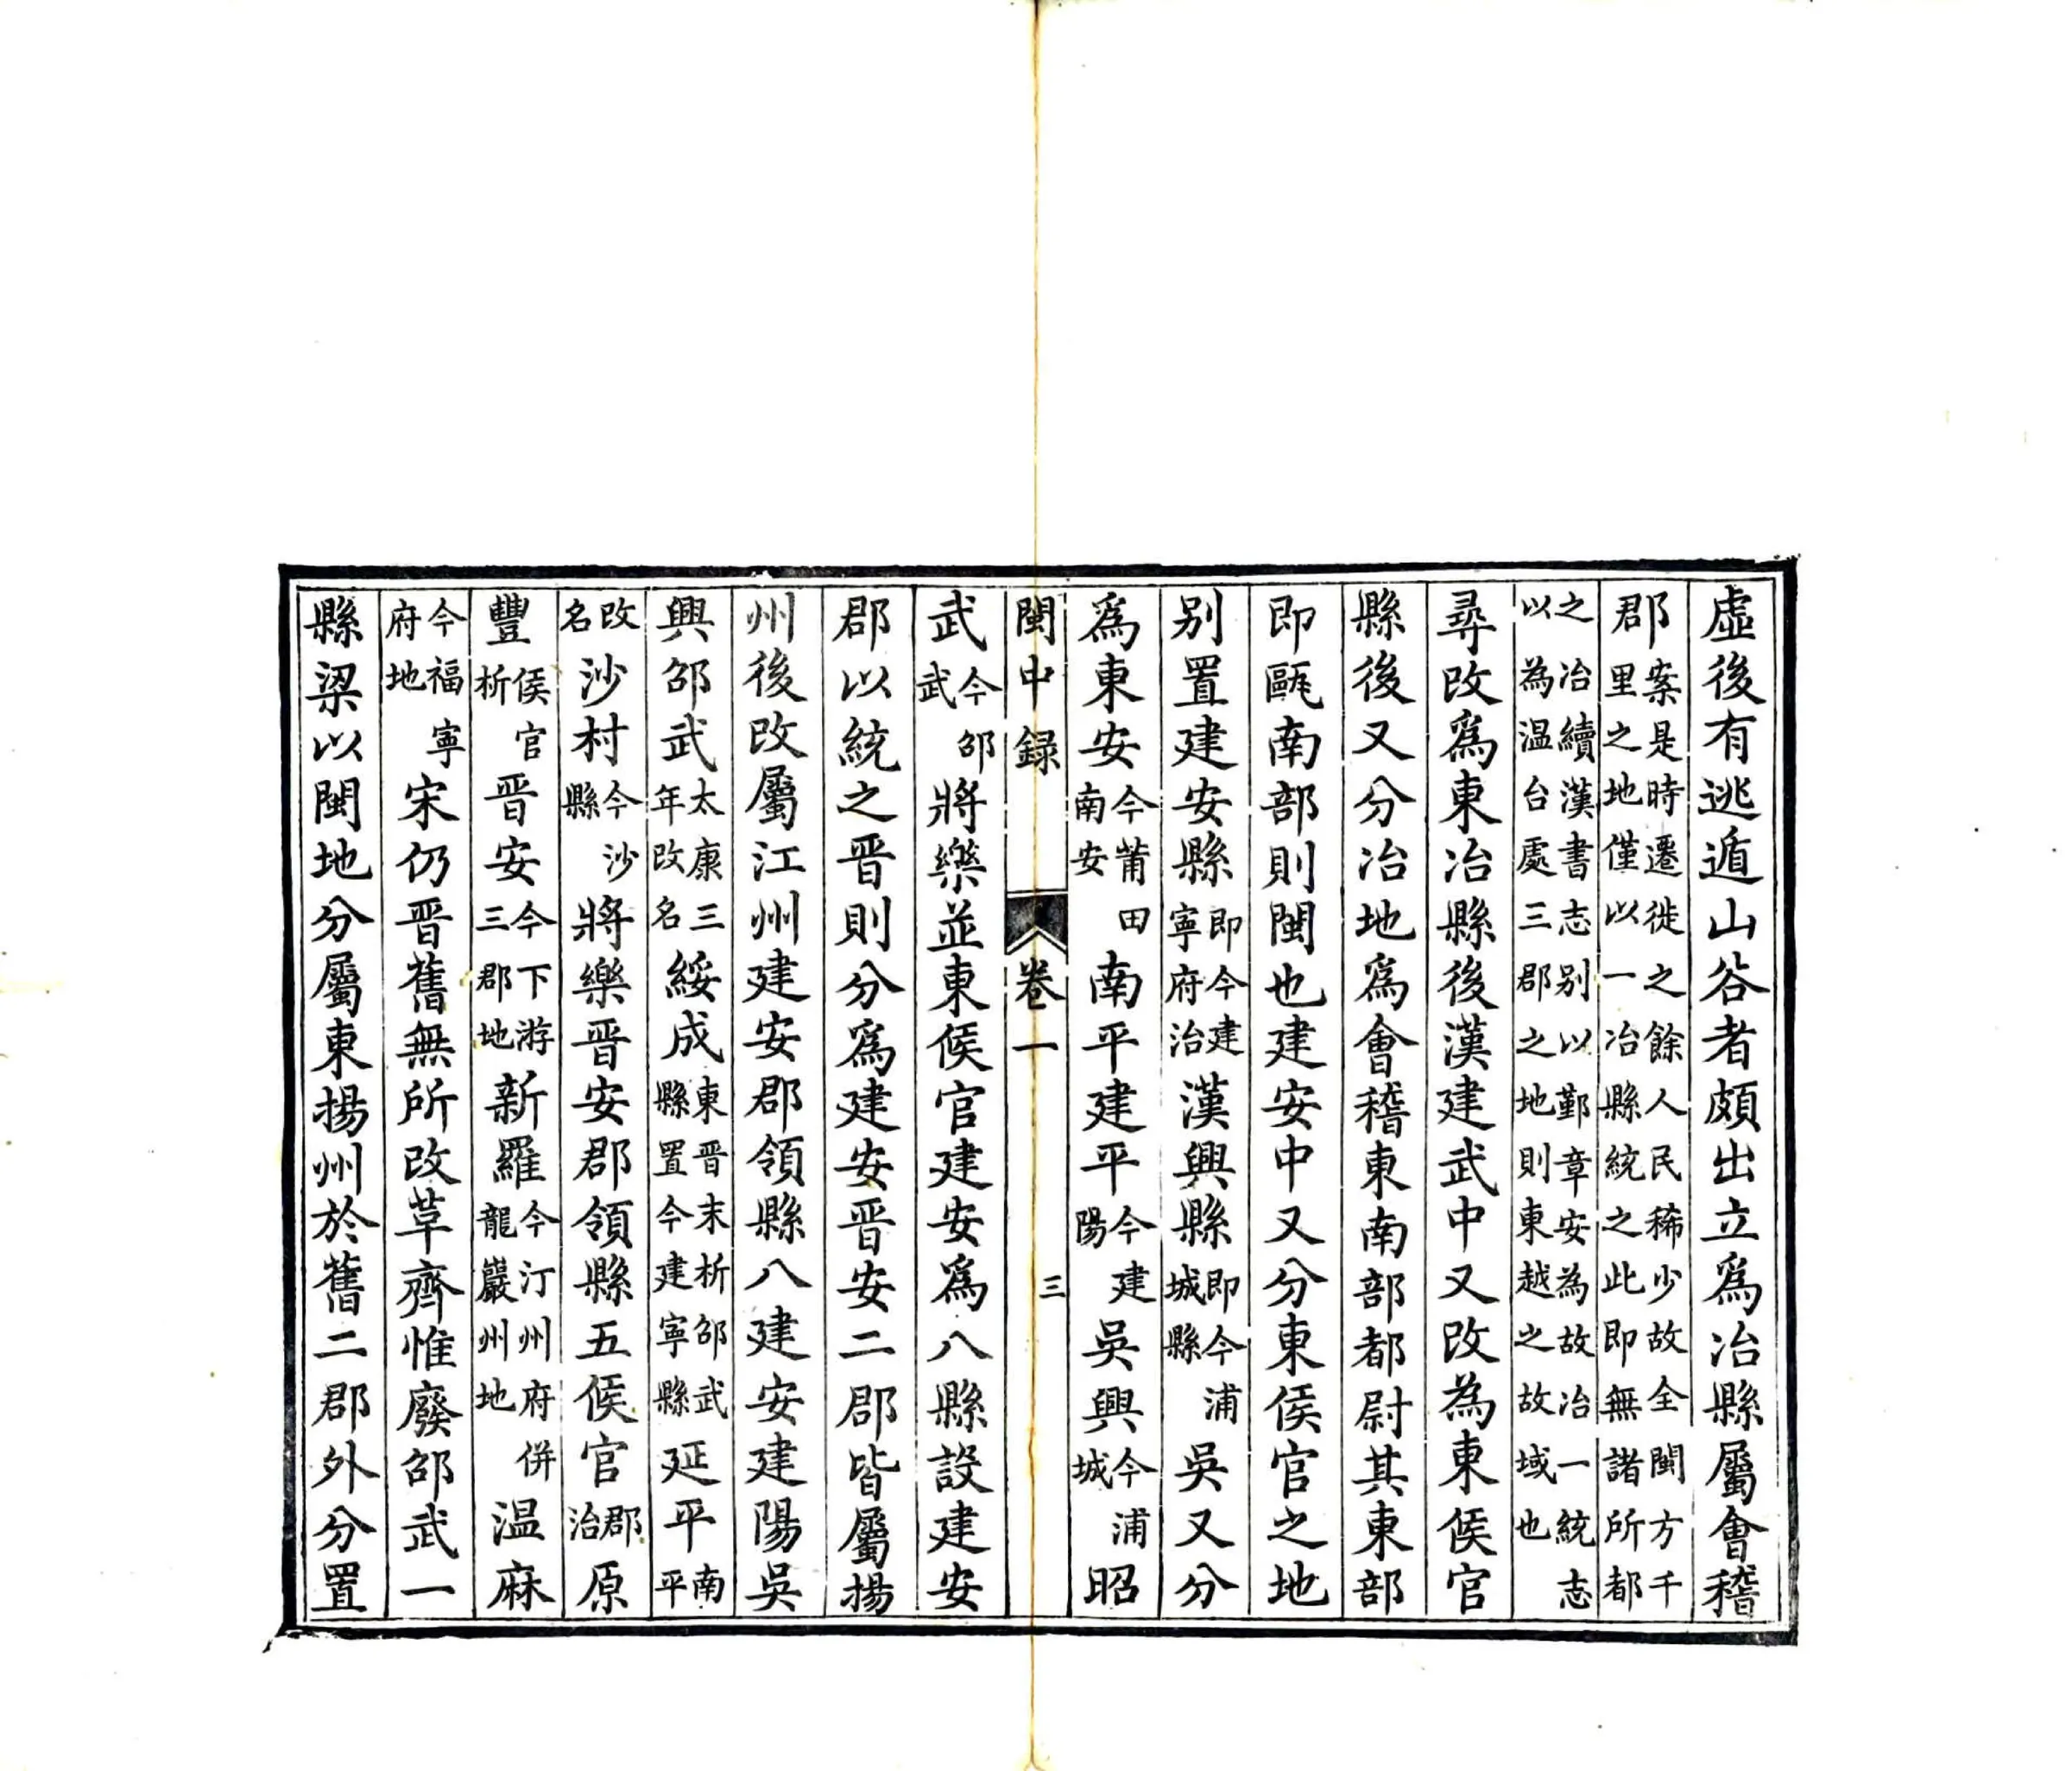 虛後有逃遁山谷者頗出立爲冶縣屬會稽
郡案是時遷徙之餘人民稀少故全閩方千里之地僅以一冶縣統之此即無諸所都
之冶續漢書志别以鄞章安為故冶一統志以為温台處三郡之地則東越之故域也
尋改爲東冶縣後漢建武中又改為東侯官
縣後又分冶地爲會稽東南部都尉其東部
即甌南部則閩也建安中又分東侯官之地
别置建安縣即今建寧府治漢興縣即今浦城縣吳又分
爲東安今莆田南安南平建平今建陽吳興今浦城昭
閩中録 卷一 三
武今邵武將樂並東侯官建安爲八縣設建安
郡以統之晋則分爲建安晋安二郡皆屬揚
州後改屬江州建安郡領縣八建安建陽吳
興邵武太康三年改名綏成東晋末析邵武縣置今建寧縣延平南平
改名沙村今沙縣將樂晋安郡領縣五侯官郡治原
豐侯官析晋安今下游三郡地新羅今汀州府併龍巖州地温麻
今福寧府地宋仍晋舊無所改草齊惟廢邵武一
縣梁以閩地分屬東揚州於舊二郡外分置